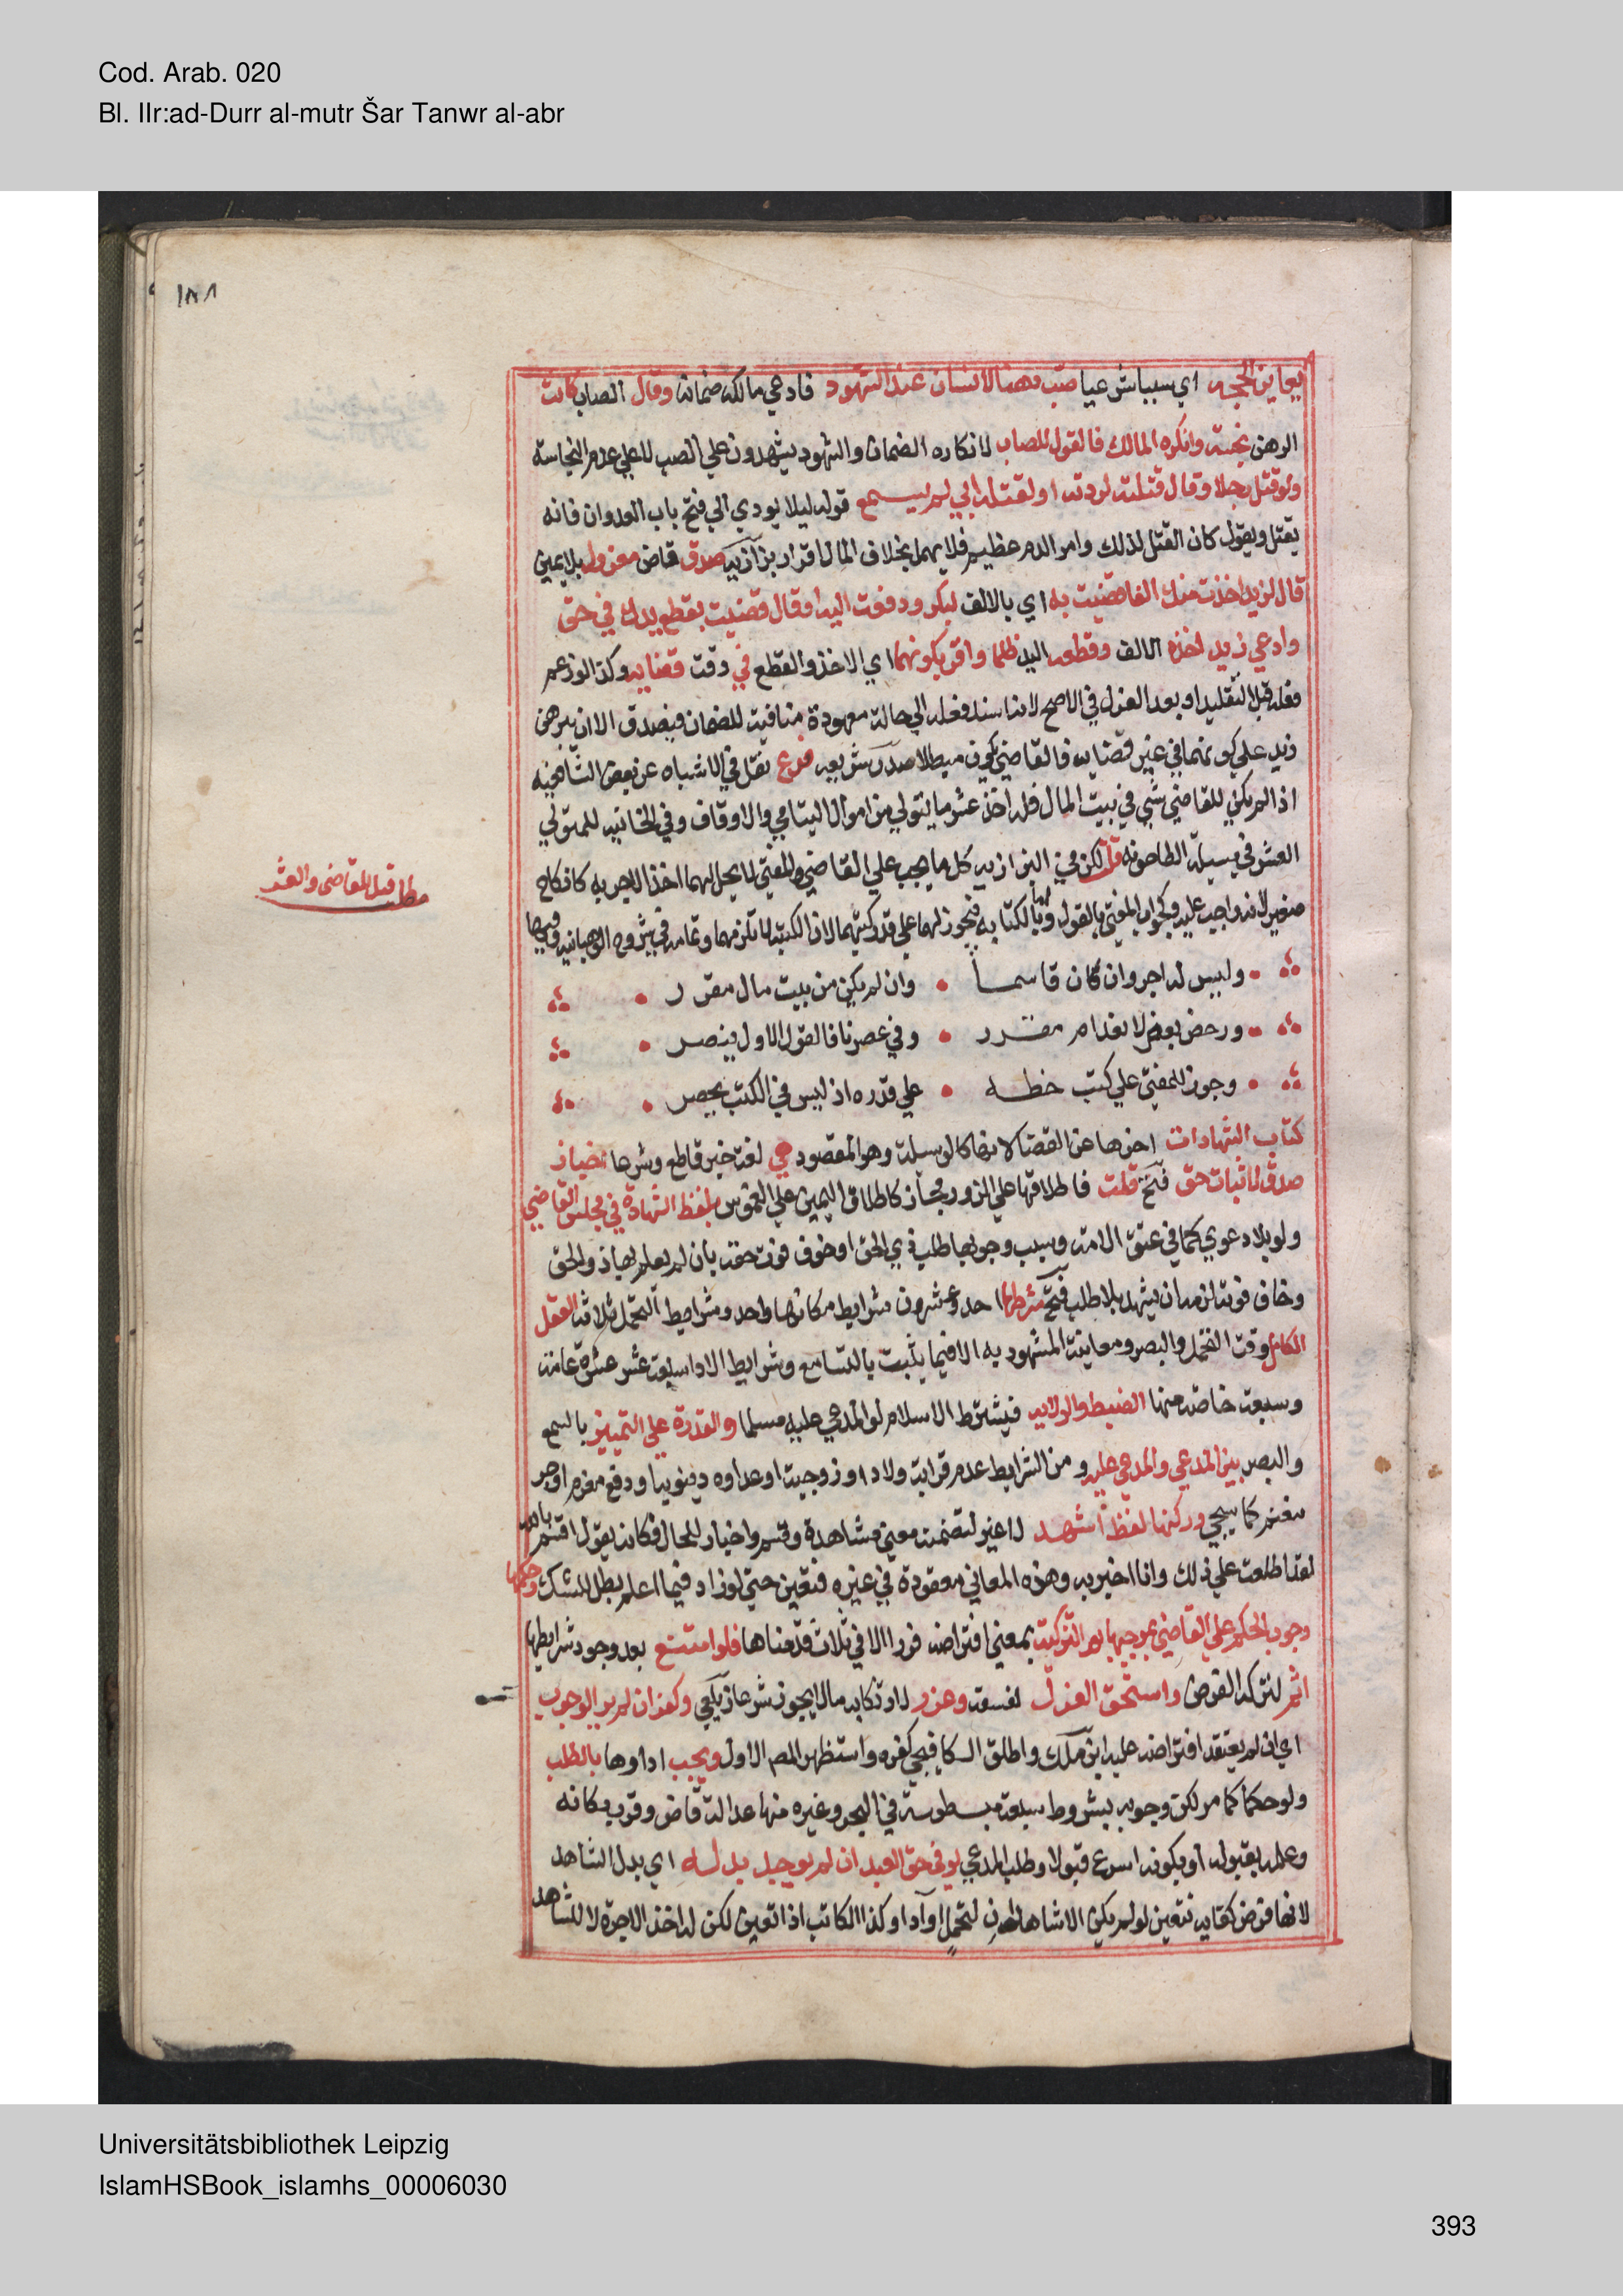 Cod. Arab. 020
Bl. IIr:ad-Durr al-mutr Šar Tanwr al-abr
١٨٨
يعاين الحجه اي سببا شرعيا صب دهنا لانسان عند الشهود فادعي مالكه ضمانه وقال الصاب كانت
الدهن نجسة وانكره المالك فالقول للصاب لانكاره الضمان والشهود يشهدون علي الصب لا علي عدم النجاسة
ولو قتل رجلا وقال قتلته لردته او لقتله ابي لم يسمع قوله ليلا يودي الي فتح باب العدوان فانه
يقتل ويقول كان القتل لذلك وامر الدم عظيم فلا يهمل بخلاف المال اقرار بزازيه صدق قاض معزول بلا يمين
قال لزيد اخذت منك الفا قضيت به اي بالالف لبكر ودفعت اليه او قال قضيت بقطع يدك في حق
وادعي زيد اخذه الالف وقطعه اليد ظلما واقر بكونهما اي الاخذ والقطع في وقت قضايه وكذا لو زعم
فعله قبل التقليد او بعد العزل في الاصح لانه اسند فعله الي حالة معهودة منافية للضمان فيصدق الا ان يبرهن
زيد علي كونهما في غير قضايه فالقاضي يكون مبطلا صدر شريعه فرع نقل في الاشباه عن بعض الشافعيه
اذا لم يكن للقاضي شي في بيت المال فله اخذ عشر ما يتولي من اموال اليتامي والاوقاف وفي الخانيه للمتولي
العشر في مسيلة الطاحونه قلت لكن في البزازيه كل ما يجب علي القاضي والمفتي لا يحل لهما اخذ الاجر به كانكاح
صغير لانه واجب عليه وكجواب المفتي بالقول واما بالكتابه فيجوز لهما علي قدر كتبهما لان الكتبة لا تلزمهما وتمامه في شروح الوهبانيه وفيها
مطلب قبل للقاضي والعشر
وليس له اجر وان كان قاسما • وان لم يكن من بيت مال مقرر •
ورخص بعض لانعدام مقرر • وفي عصرنا فالقول الاول ينصر •
وجوز للمفتي علي كتب خطه • علي قدره اذ ليس في الكتب يحصر •
كتاب الشهادات اخرها عن القضا لانها كالوسيلة وهو المقصود هي لغة خبر قاطع وشرعا اخبار
صدق لاثبات حق فتح قلت فاطلاقها علي الزور مجاز كاطلاق اليمين علي الغموس بلفظ الشهادة في مجلس القاضي
ولو بلا دعوي كما في عتق الامة وسبب وجوبها طلب ذي الحق او خوف فوت حقه بان لم يعلم بها ذو الحق
وخاف فوته لزمه ان يشهد بلا طلب فتح شرطها احد وعشرون شرايط مكانها واحد وشرايط التحمل ثلاثة العقل
الكامل وقت التحمل والبصر ومعاينة المشهود به الا فيما يثبت بالتسامع وشرايط الادا سبعة عشر عشرة عامة
وسبعة خاصة منها الضبط والولايه فيشترط الاسلام لو المدعي عليه مسلما والقدرة علي التمييز بالسمع
والبصر بين المدعي والمدعي عليه ومن الشرايط عدم قرابة ولاد او زوجية او عداوه دنيوية او دفع مغرم او جر
مغنم كما سيجي وركنها لفظ اشهد لا غير لتضمنه معني مشاهدة وقسم واخبار للحال فكانه يقول اقسم بالله
لقد اطلعت علي ذلك وانا اخبر به وهذه المعاني مفقودة في غيره فتعين حتي لو زاد فيما اعلم بطل للشك وحكمها
وجوب الحكم علي القاضي بموجبها بعد التزكية بمعني افتراضه فورا الا في ثلاث قدمناها فلو امتنع بعد وجود شرايطها
اثم لتركه الفرض واستحق العزل لفسقه وعزر لارتكابه ما لا يجوز شرعا زيلعي وكفر ان لم ير الوجوب
اي ان لم يعتقد افتراضه عليه ابن ملك واطلق الكافيجي كفره واستظهر المصم الاول ويجب اداوها بالطلب
ولو حكما كما مر لكن وجوبه بشروط سبعة مبسوطة في البحر وغيره منها عدالة قاض وقرب مكانه
وعلمه بقبوله او بكونه اسرع قبولا وطلب المدعي لو في حق العبد ان لم يوجد بدله اي بدل الشاهد
لانها فرض كفايه تتعين لو لم يكن الا شاهدان لتحمل او ادا وكذا الكاتب اذا تعين لكن له اخذ الاجرة لا للشاهد
Universitätsbibliothek Leipzig
IslamHSBook_islamhs_00006030
393